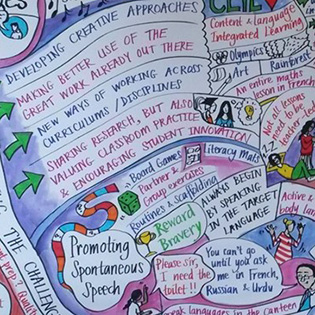 DEVELOPING CREATIVE APPROACHES
MAKING BETTER USE OF THE
GREAT WORK ALREADY OUT THERE
NEW WAYS OF WORKING ACROSS
CURRICULUMS / DISCIPLINES
SHARING RESEARCH, BUT ALSO
VALUING CLASSROOM PRACTICE
& ENCOURAGING STUDENT INNOVATION!
CLIL
Content & language
Integrated Learning
Olympics
Art
Rainforest
An entire maths
lesson in French
Not all lessons
need to be
teacher led
Board Games
Literacy Mats
Partner &
Group exercises
Routines & Scaffolding
Reward
Bravery
ALWAYS BEGIN
BY SPEAKING
IN THE TARGET
LANGUAGE
Active &
body lan
Promoting
Spontaneous
Speech
Please sir,
I need the
toilet !!
You can't go
until you ask
me in French,
Russian & Urdu
speak languages in the canteen
THE CHALLEN